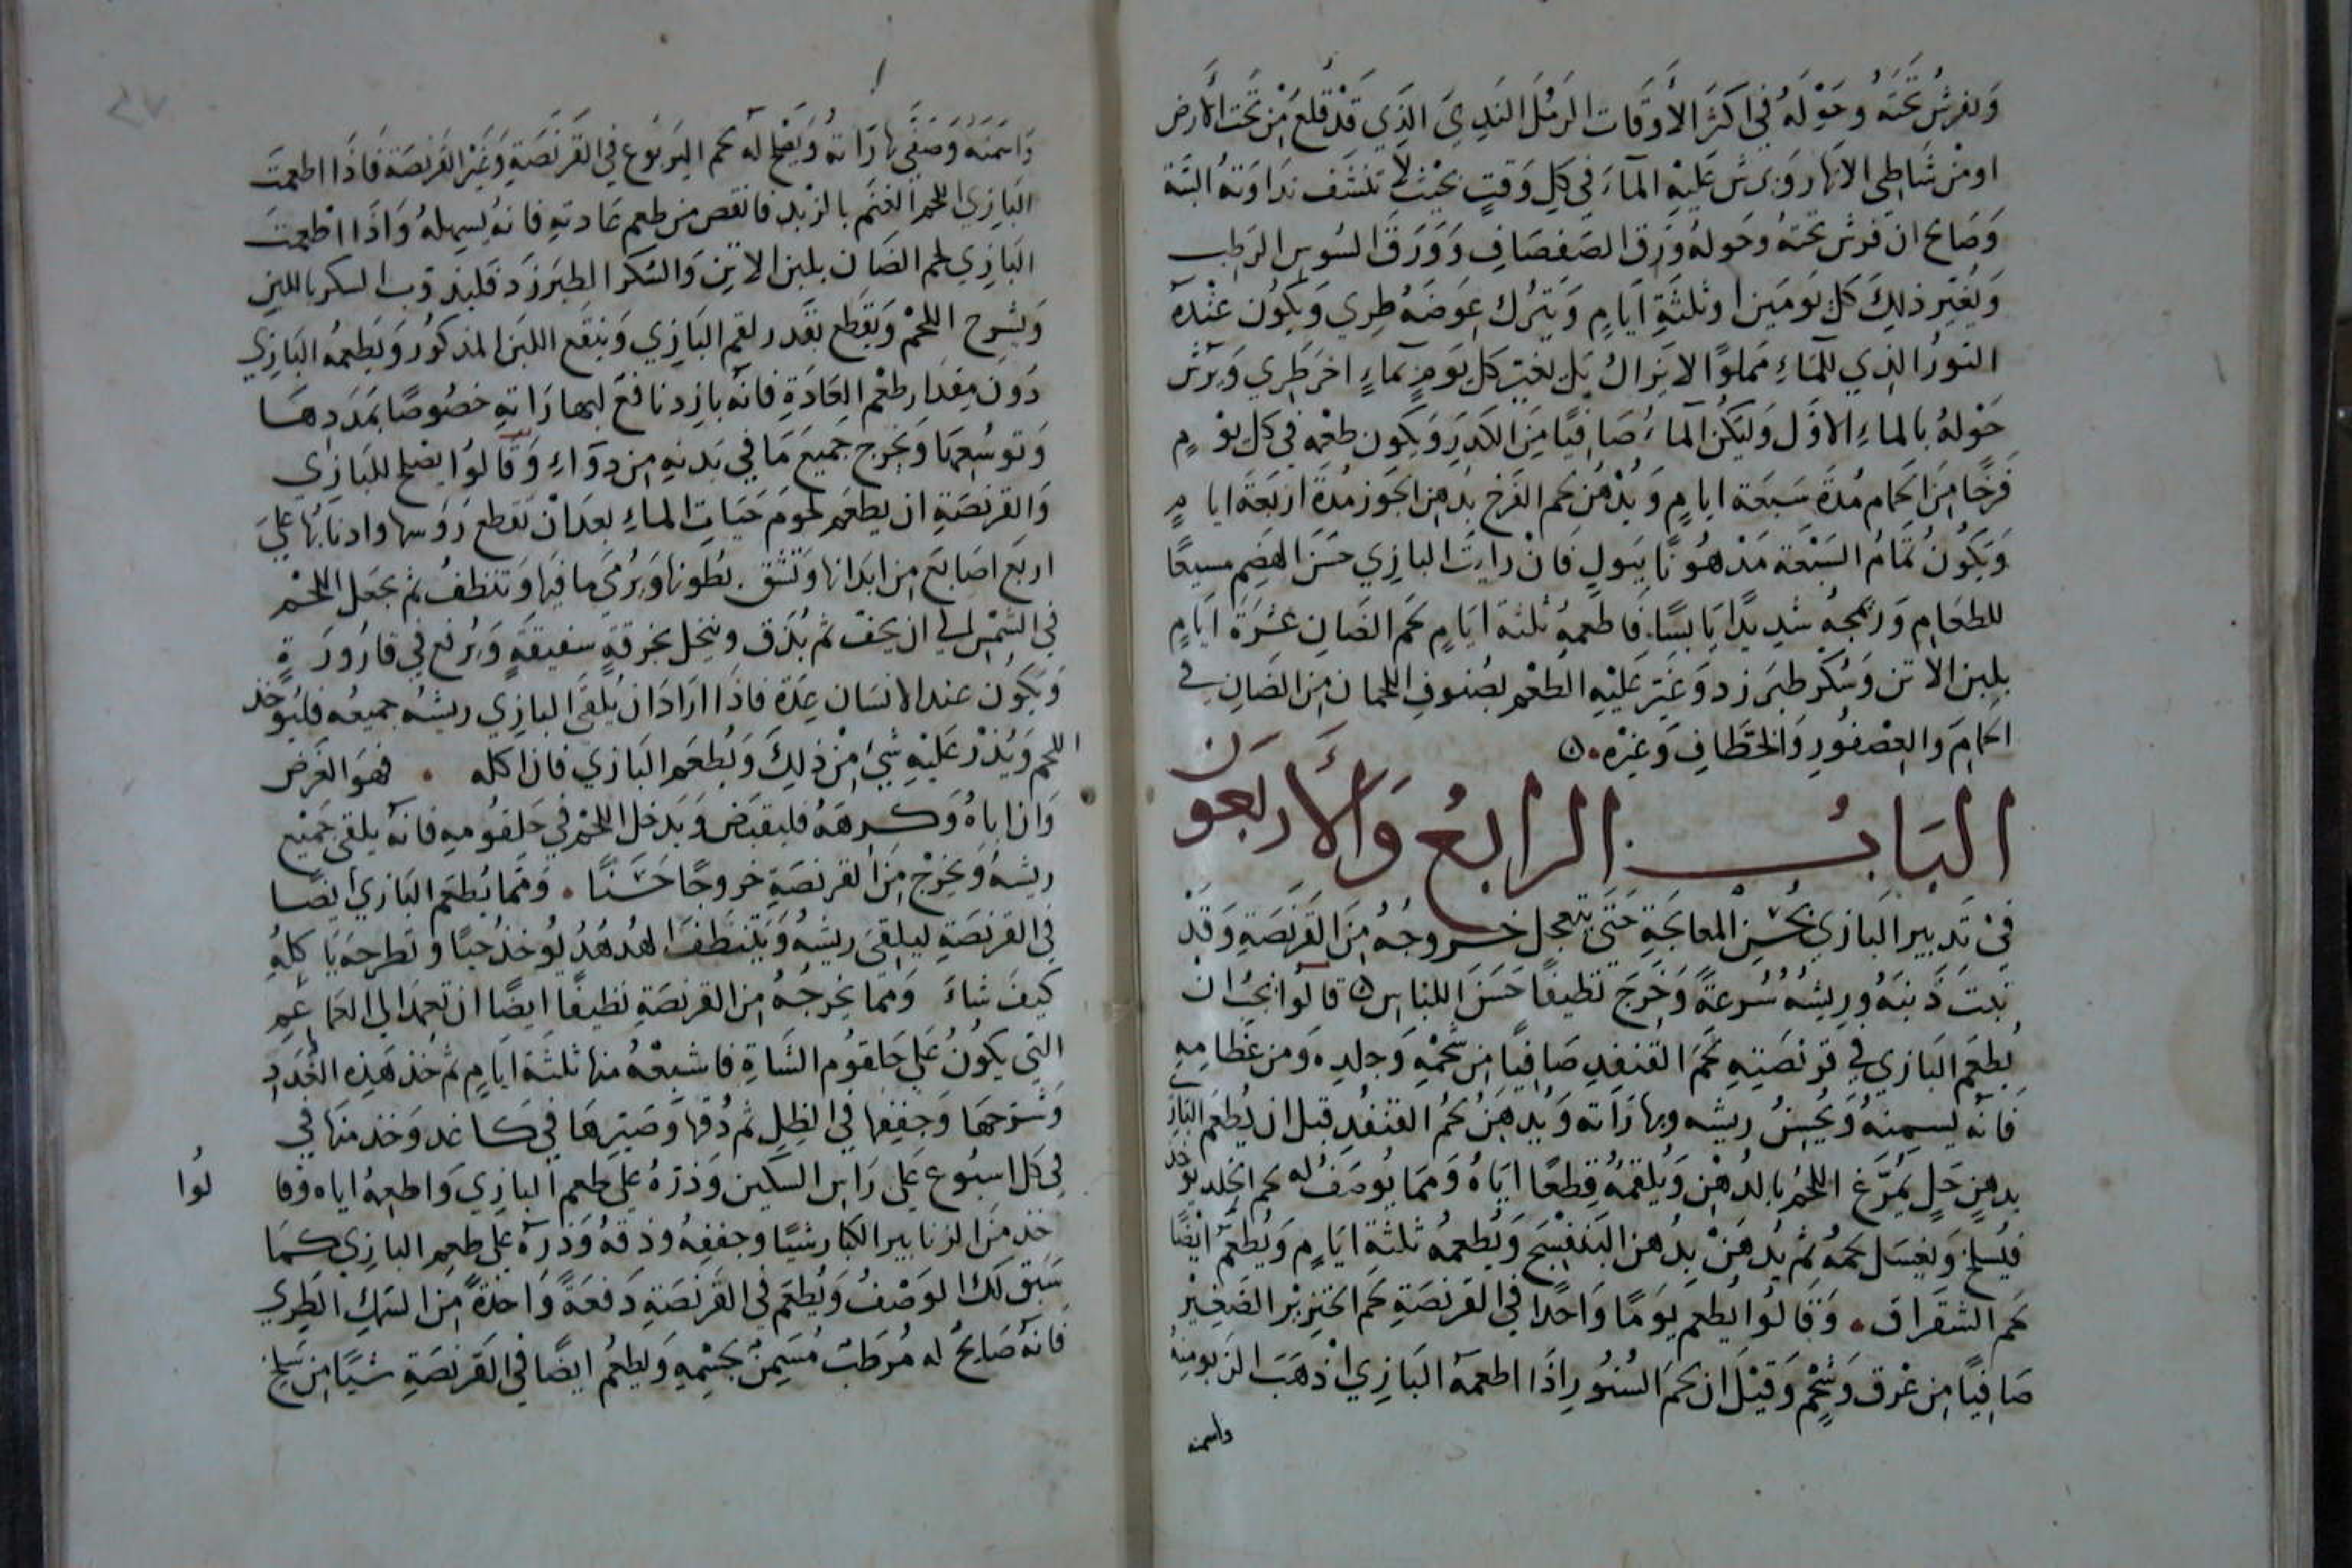 وَيفرشُ تحَتَهُ وحَوْلَهُ في اكثرَ الأَوقَات الرَمْلَ النَدِيَ الذِي قَدْ قُلعَ مِنْ تحَت الأَرض
اومْن شَاطِى الانهار وَيرش عَليْهِ المآءَ في كلِ وَقتٍ بحَيْث لا تنشف نَدَاوَتهُ البتَة
وَصَالح ان فَرش تحتهُ وحَولهُ وَرق الصَفصَافِ وَوَرَق السُوسِ الرَطب
وَيُغيّر ذلِكَ كل يَومَين او ثلثَةِ ايَامٍ وَيتَرُك عِوَضَهُ طِري وَيكُون عنْدهَ
التورُ الذِي للمَاءِ مَملوًا لا يَزالُ بَل يغيّر كل يَومٍ بمآءٍ اخر طَرِي وَيرَش
حَوْلهُ بالماءِ الاوَل وَليكُن المآءُ صَافيًا مِنَ الكدَرِ وَيكون طعْمه في كل يوْمٍ
فَرخًا مِنَ الحَمام مُدةَ سَبعَة ايامٍ وَيُدْهَن لحم الفَرخ بدهن الجَوز مُدةَ اربَعَة ايامٍ
وَيكُونُ تمامُ السَبْعَة مَدْهُونًا ببَولٍ فَانْ رايتَ البازِي حسَنَ الهَضِم مسيغًا
للطعَامِ وَرمجهُ شدِيدًا يَابسًا فَاطعمهُ ثلثة ايَامٍ لحم الضَان عشرَة ايَامٍ
بلبن الاتن وَسُكر طبَرزد وَغيّر عَليْهِ الطعْم بصُنوفِ اللحمان مِن الضَان في
الحمامَ وَالعصْفُورِ وَالخطَافِ وَغيرْه
البَابُ الرابعُ وَالأَربَعَونَ
فيْ تَدبير البَازيْ بحُسْنِ المعالجَةِ حَتىَ يتَعجل خرُوجُهُ مِنَ القَرنَصَةِ وَقَدْ
نبتَ ذَنبَهُ وريشهُ سُرعةً وَخرَجَ نظيفًا حَسَنَ اللبَاس قالوا يجبُ ان
يُطعَم البَازي في قرنصَتِهِ لحَمَ القنفِدِ صَافيًا مِن شحْمهِ وَجلدِه وَمن عَظامِهِ
فَانه يسمِنهُ وَيُحسنُ ريشه وبهازَاته وَيُدهَنُ لحُم القنفُدِ قبل ان يُطعَم البَازي
بدهنِ حَلٍ يُمرَغ اللحمُ بالدُهْن وَيُلقمهُ قِطعًا ايَاهُ وَممَا يُوصَفُ له لحم الخلد يوخذ
فيُسلخ وَيغسَل لحمهُ ثم يُدهَنْ بدُهن البَنفسَج وَيُطعمه ثلثةِ ايَامٍ وَيُطعَمُ ايْضًا
لحم الشقرَاق وَقَالوُا يُطعم يَومًا وَاحدًا في القَرنصَةِ لحَم الخنزيْر الصَغيرْ
صَافيًا مِن عُرقٍ وَشحْمٍ وَقيْلَ ان لحَم السُنوُرِ اذَا اطعمهُ البَازِيْ اذهَبَ الزَبومنهُ
واسمنه
وَاسَمَنَهُ وَصَفَى بهازَاتهُ وَيصَلح له لحم اليَربوَع في القَرنَصَةِ وَغَيْر القَرنصَة فَاذَا اطعمتَ
البَازِي اللحم الغنَم بالزبد فانقص من طعمِ عَادتهِ فانهُ يسهلهُ وَاذَا اطْعمتَ
البَازِي لحم الضَان بلبَن الاتن وَالسُكر الطبَرزَد فليُذوّب السكر باللبن
وَيشرح اللحمْ وَيقَطع بقَدر لقم البَازِي وَينقَع اللبَن المذكوُر وَيَطعمهُ البَازِي
دُونَ مِقدَار طعْم العَادَةِ فانهُ بازد نافعَ لبهازَاتهِ خصُوصًا بمَدَدِهَا
وَتوسُعِهَا وَيخرج جَميعَ مَا في بَدنهِ مِن دوَآءٍ وَقَالوُا يصَلح للبَازي
وَالقرنَصَةِ ان يطعَم لحومَ حَيَاتِ الماءِ بعدَ انْ تقطع رَؤُسها واذنَابُها علىَ
اربَع اصَابع مِن ابدَانها وَتشق بُطونها وَيرُمىَ ما فيهَا وَتنظفُ ثم يجعَل اللحمْ
في الشمْس الي ان يجفّ ثم يُدَق وينخل بخرقةٍ سفيقةٍ وَيرُفع في قارُورَةٍ
وَيكُون عند الانسَان عِدَة فاذَا ارَادَ ان يُلقى البازي ريشهُ جميعهُ فليُؤخذ
اللحم وَيُذرْ عَليْهِ شئ مِنْ ذلِكَ وَيُطعَم البَازي فان اكله فهوَ الغَرَض
وَان ابَاهُ وَكرِهَهُ فليقبَض وَيَدخل اللحْم في حَلقُومِهِ فانَه يلقى جَميْع
ريشهُ وَيخرجْ مِنَ القرنصَةِ خروجًا حَسَنًا وَمما يُطعَم البَازي ايضًا
في القرنصَةِ ليلقىَ ريشهُ وَيتنظفَ الهُدهُدُ يُوخذُ حيًا وَيطرحهُ يَاكلهُ
كيفَ شاءَ وَمما يخرجُهُ مِن القرنصَةِ نظيفًا ايضًا ان تعمَد الي الغَمَاغمِ
التي يكونُ علي حَلقوُم الشَاةِ فاشبعْهُ منها ثلثَة ايَامٍ ثم خذ هَذِه الغُدَدِ
وَشرَحهَا وَجففِها في الظِلِ ثم دُقهَا وَصَيّرهَا في كاغد وَخذ منهَا في
في كل اسبُوع عَلى رَاس السكين وَذرهُ علي طعم البازِي وَاطعِمهُ اياه وقا
لوُا
خذ مَن الزنابير الكبار شيًا وجففهُ ودقهُ وَذرهُ علي طعِم البازِي كمَا
سَبق لكَ الوَصْفُ وَيُطعَم في القَرنَصَةِ دَفعَةً وَاحِدَةً مِن السَمكِ الطَرِي
فَانهُ صَالحٌ له مُرطبَ مُسَمِنٌ بجسْمِهِ وَيطعَمُ ايضًا في القَرنصَةِ شيًا مِن سَلخ